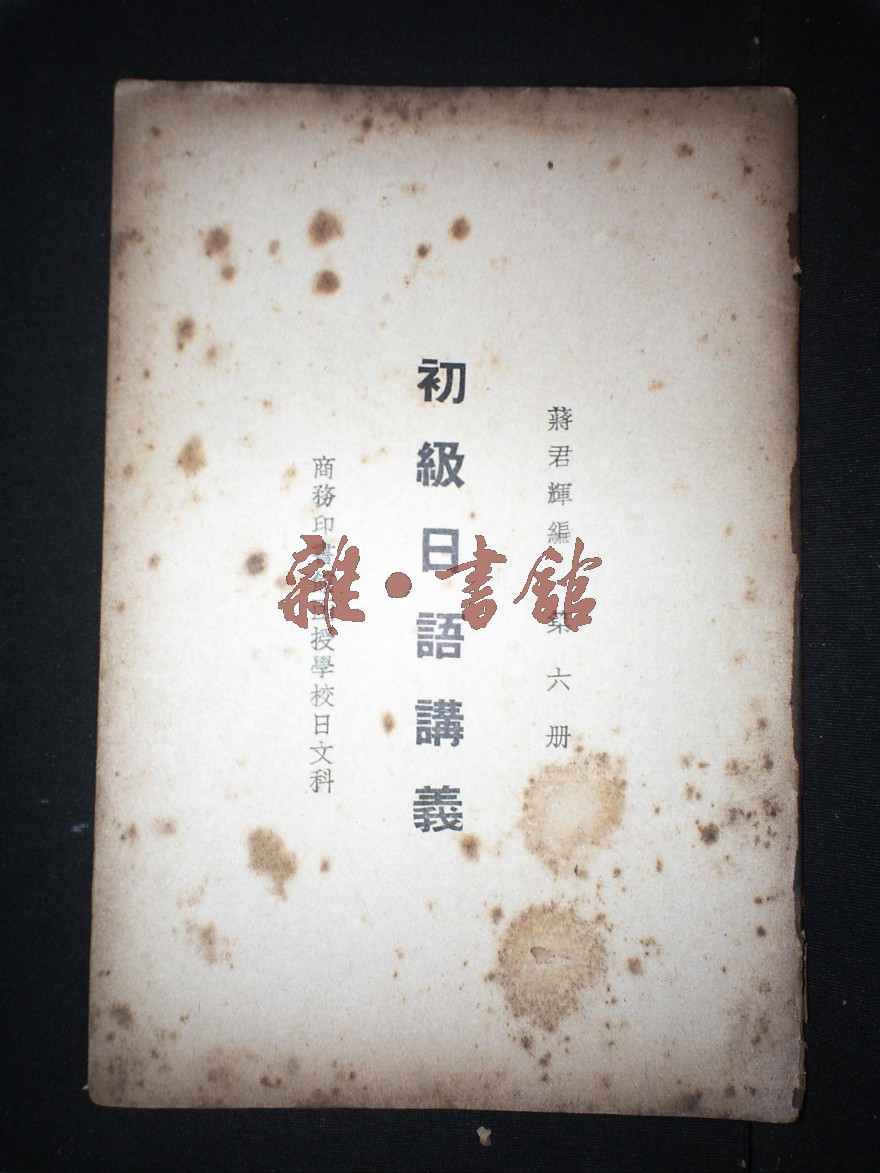 蔣君輝編 第六册
初級日語講義
商務印書館函授學校日文科
雜·書館